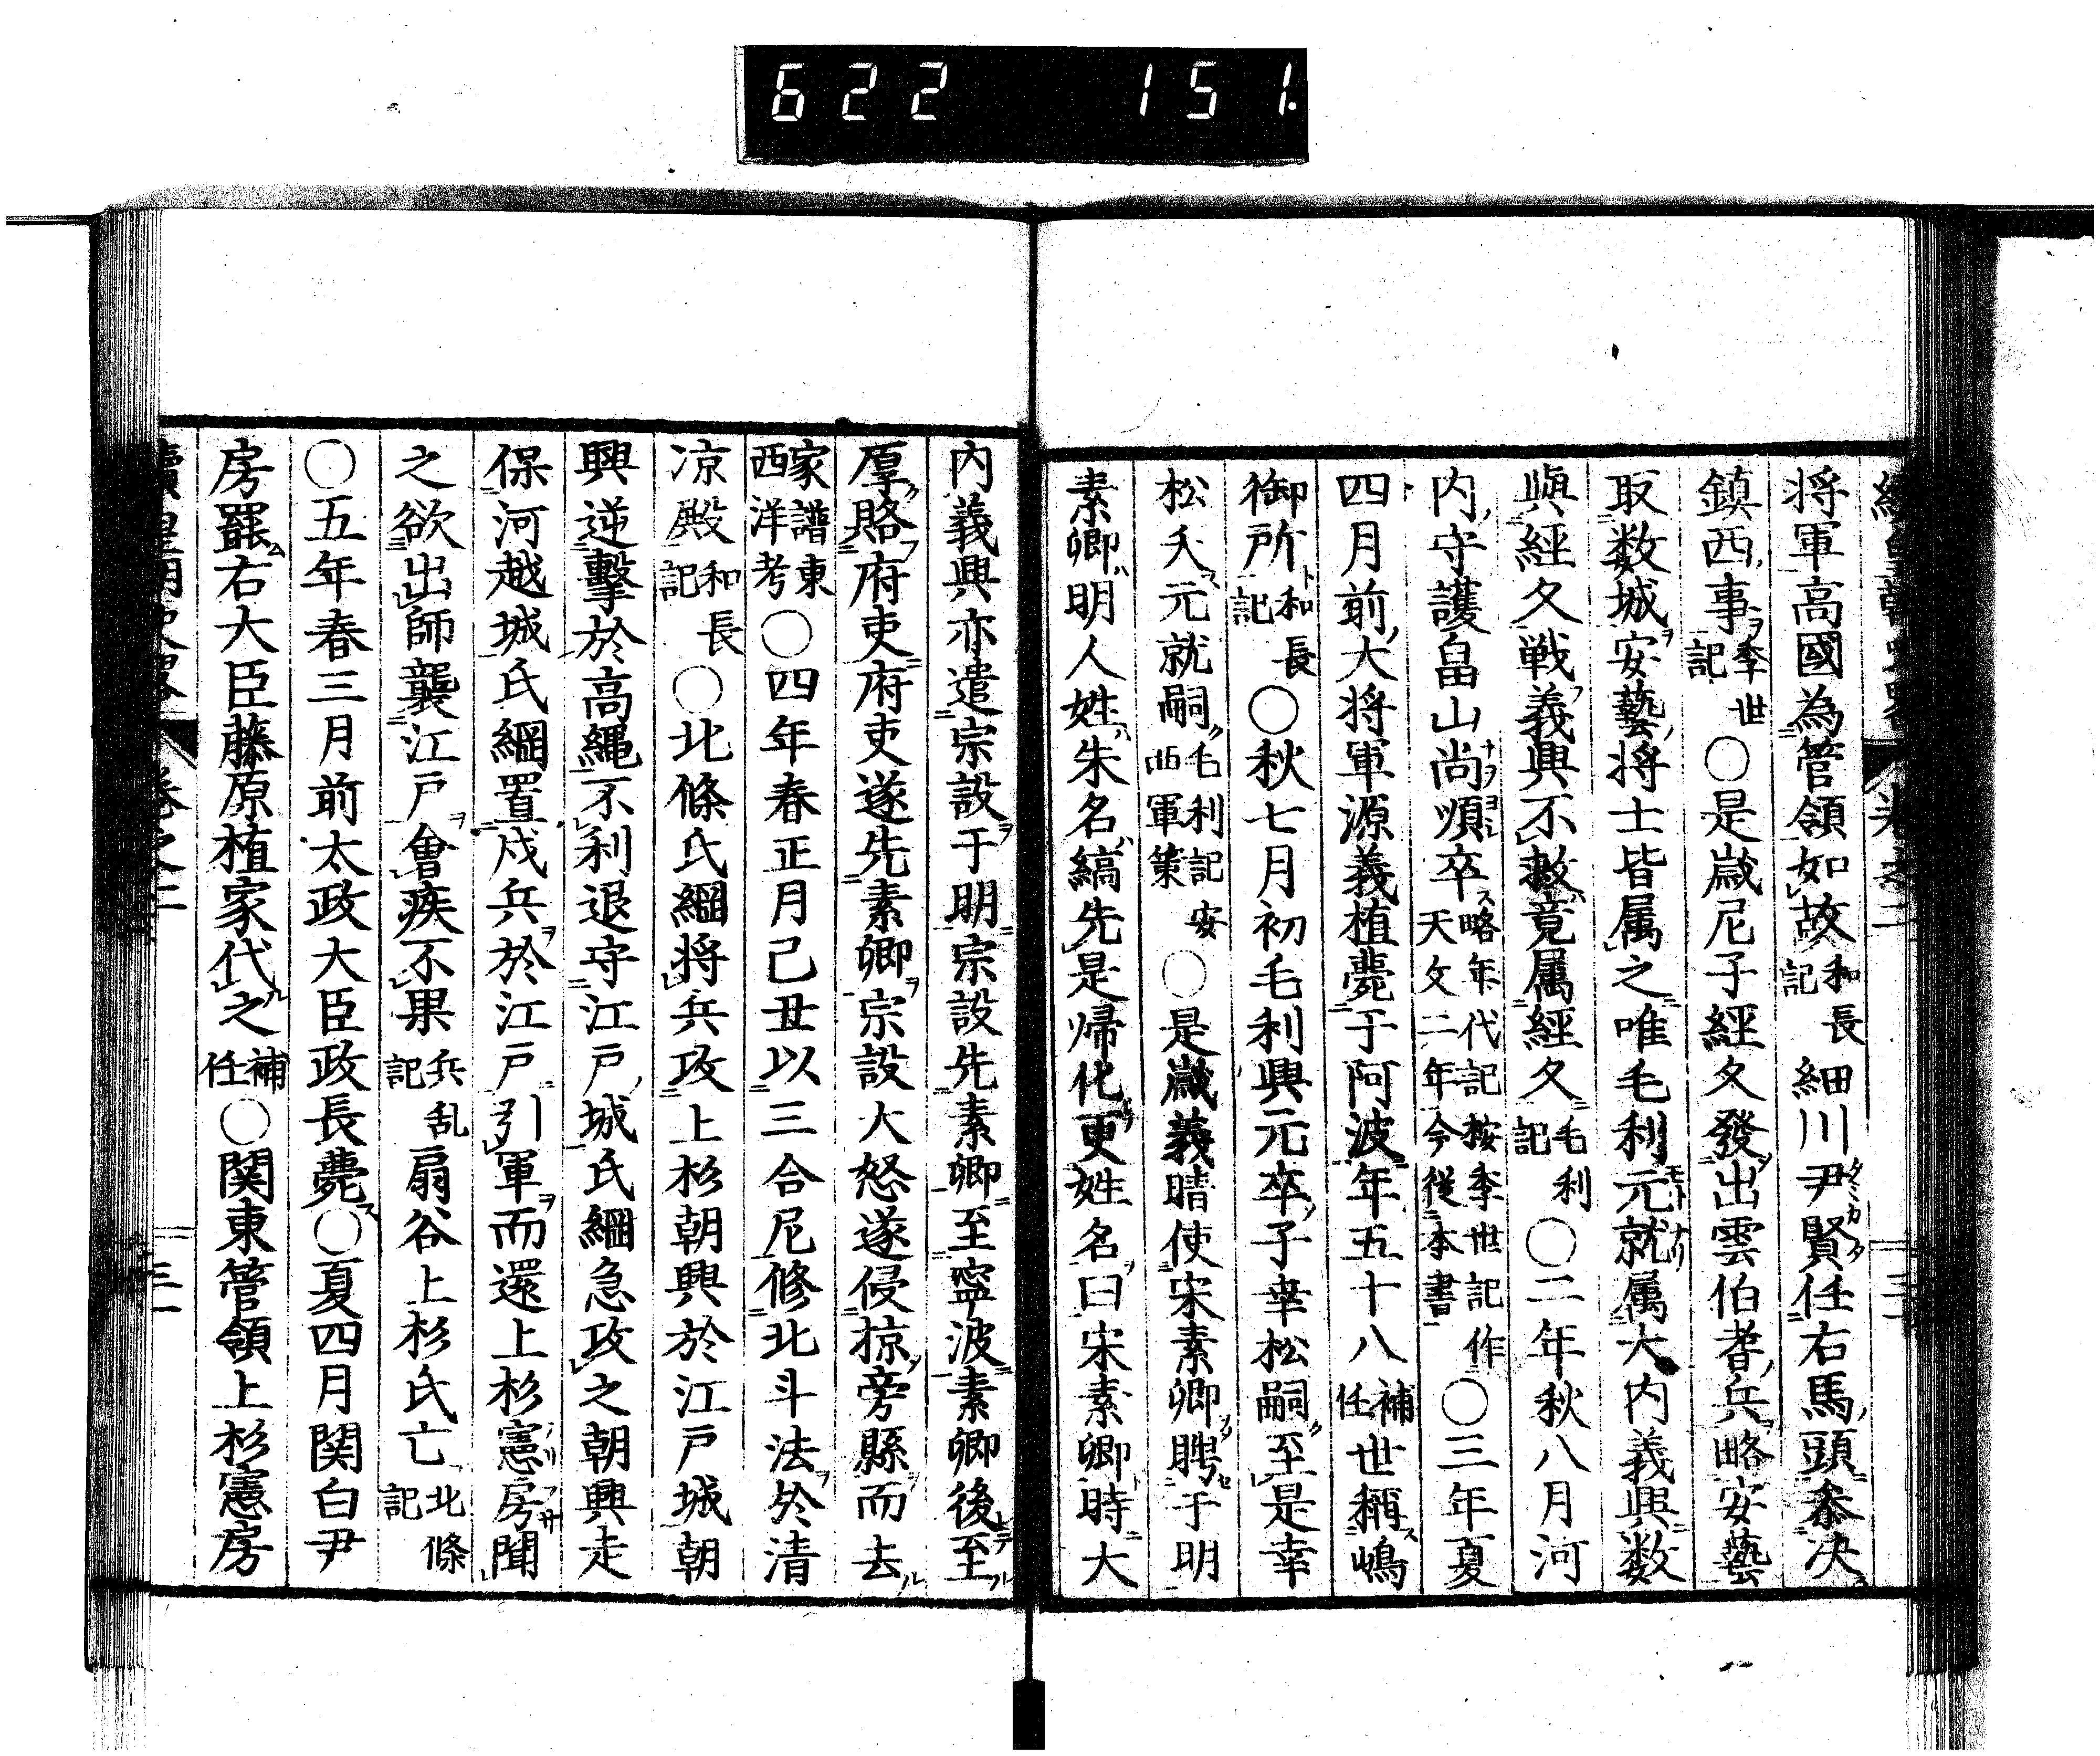 622 151.
将軍高國為管領如故和長記細川尹賢任右馬頭叅决
鎮西事季世記〇是歳尼子經久發出雲伯耆兵略安藝
取数城安藝将士皆属之唯毛利元就属大内義興数
與經久戦義興不救竟属經久毛利記〇二年秋八月河
内守護畠山尚順卒略年代記按季世記作天文二年今從本書〇三年夏
四月前大将軍源義植薨于阿波年五十八補任世稱嶋
御所和長記〇秋七月初毛利興元卒子幸松嗣至是幸
松夭元就嗣毛利記安西軍策〇是歳義晴使宋素卿聘于明
素卿明人姓朱名縞先是帰化更姓名曰宋素卿時大
内義興亦遣宗設于明宗設先素卿至寧波素卿後至
厚賂府吏府吏遂先素卿宗設大怒遂侵掠旁縣而去
家譜東西洋考〇四年春正月己丑以三合厄修北斗法於清
凉殿和長記〇北條氏綱将兵攻上杉朝興於江戸城朝
興逆擊於高縄不利退守江戸城氏綱急攻之朝興走
保河越城氏綱置戍兵於江戸引軍而還上杉憲房聞
之欲出師襲江戸會疾不果兵乱記扇谷上杉氏亡北條記
〇五年春三月前太政大臣政長薨〇夏四月関白尹
房罷右大臣藤原植家代之補任〇関東管領上杉憲房